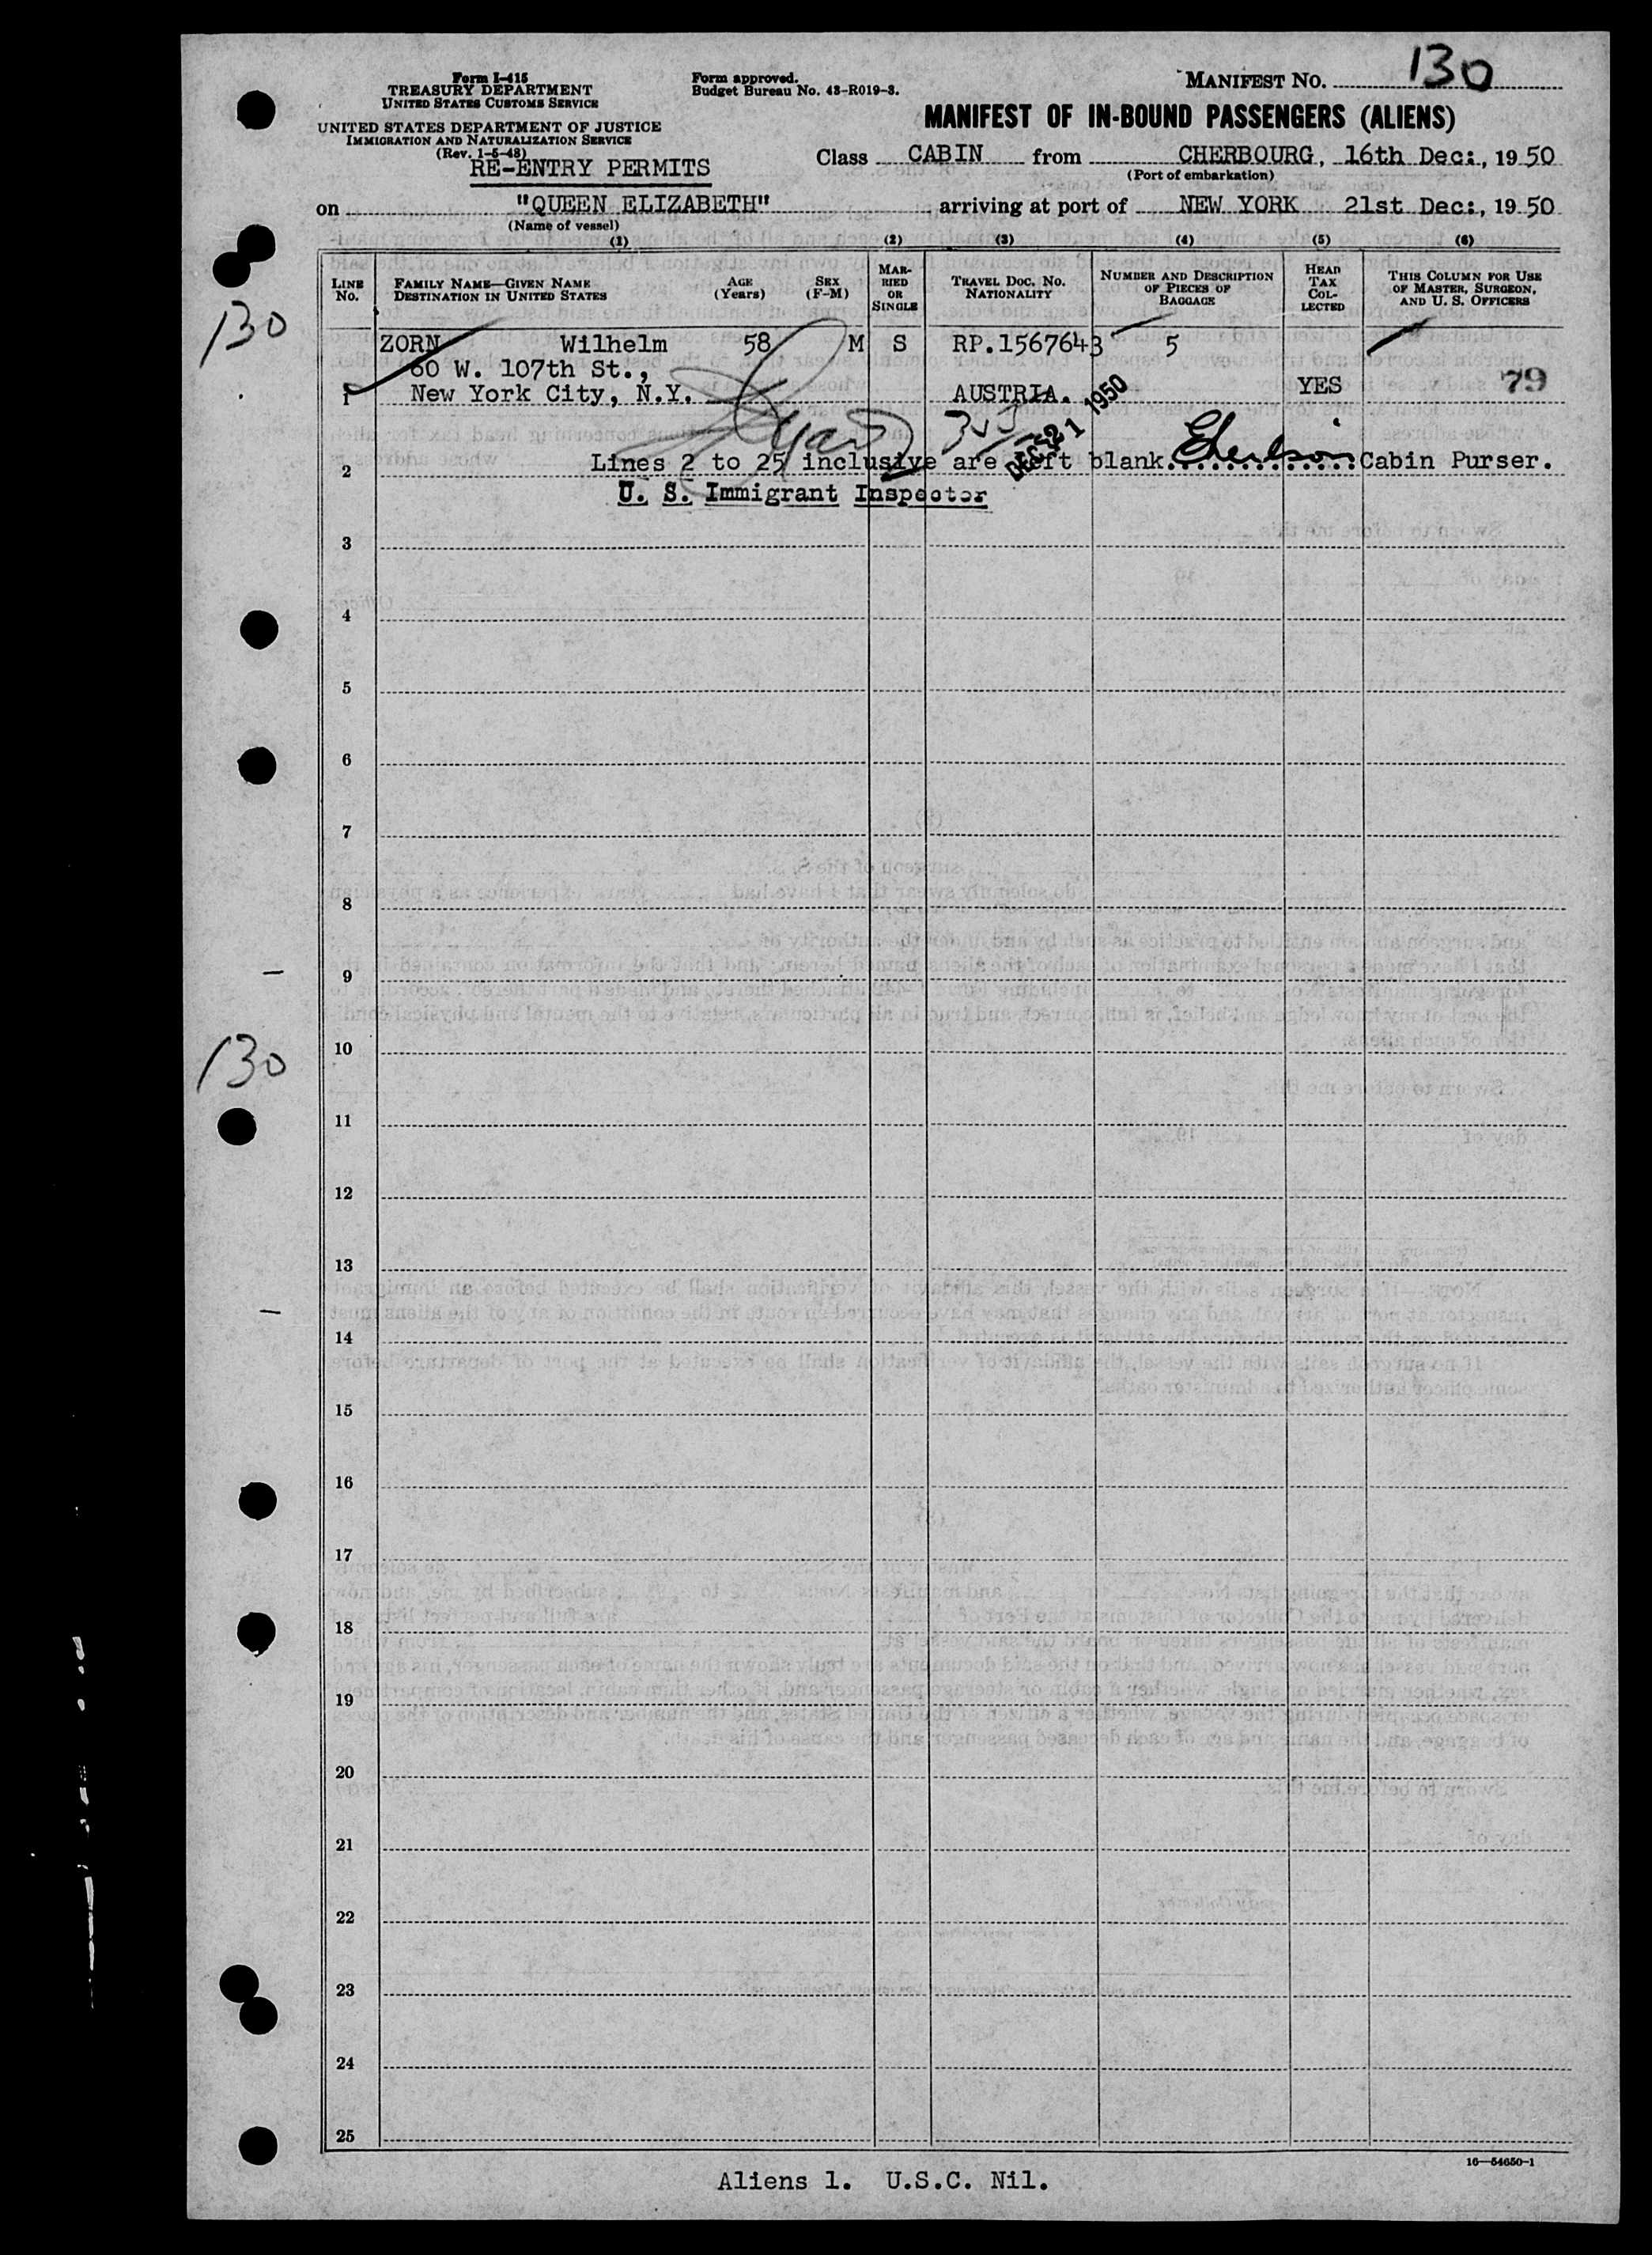 Form I-415
TREASURY DEPARTMENT
UNITED STATES CUSTOMS SERVICE
UNITED STATES DEPARTMENT OF JUSTICE
IMMIGRATION AND NATURALIZATION SERVICE
(Rev. 1-5-48)
RE-ENTRY PERMITS
Form approved.
Budget Bureau No. 43-R019-3.
MANIFEST NO. 130
MANIFEST OF IN-BOUND PASSENGERS (ALIENS)
Class CABIN from CHERBOURG, 16th Dec:, 1950
(Port of embarkation)
on "QUEEN ELIZABETH" arriving at port of NEW YORK 21st Dec:, 1950
(Name of vessel)
(1) (2) (3) (4) (5) (6)
LINE NO.
FAMILY NAME—GIVEN NAME
DESTINATION IN UNITED STATES
AGE (Years)
SEX (F-M)
MARRIED OR SINGLE
TRAVEL DOC. NO.
NATIONALITY
NUMBER AND DESCRIPTION OF PIECES OF BAGGAGE
HEAD TAX COLLECTED
THIS COLUMN FOR USE OF MASTER, SURGEON, AND U. S. OFFICERS
130
ZORN Wilhelm 58 M S RP.1567643 5
60 W. 107th St.,
1 New York City, N.Y. AUSTRIA. YES 79
DEC 21 1950
2 Lines 2 to 25 inclusive are left blank. Cabin Purser.
U. S. Immigrant Inspector
3
4
5
6
7
8
9
10
130
11
12
13
14
15
16
17
18
19
20
21
22
23
24
25
16—54650-1
Aliens 1. U.S.C. Nil.